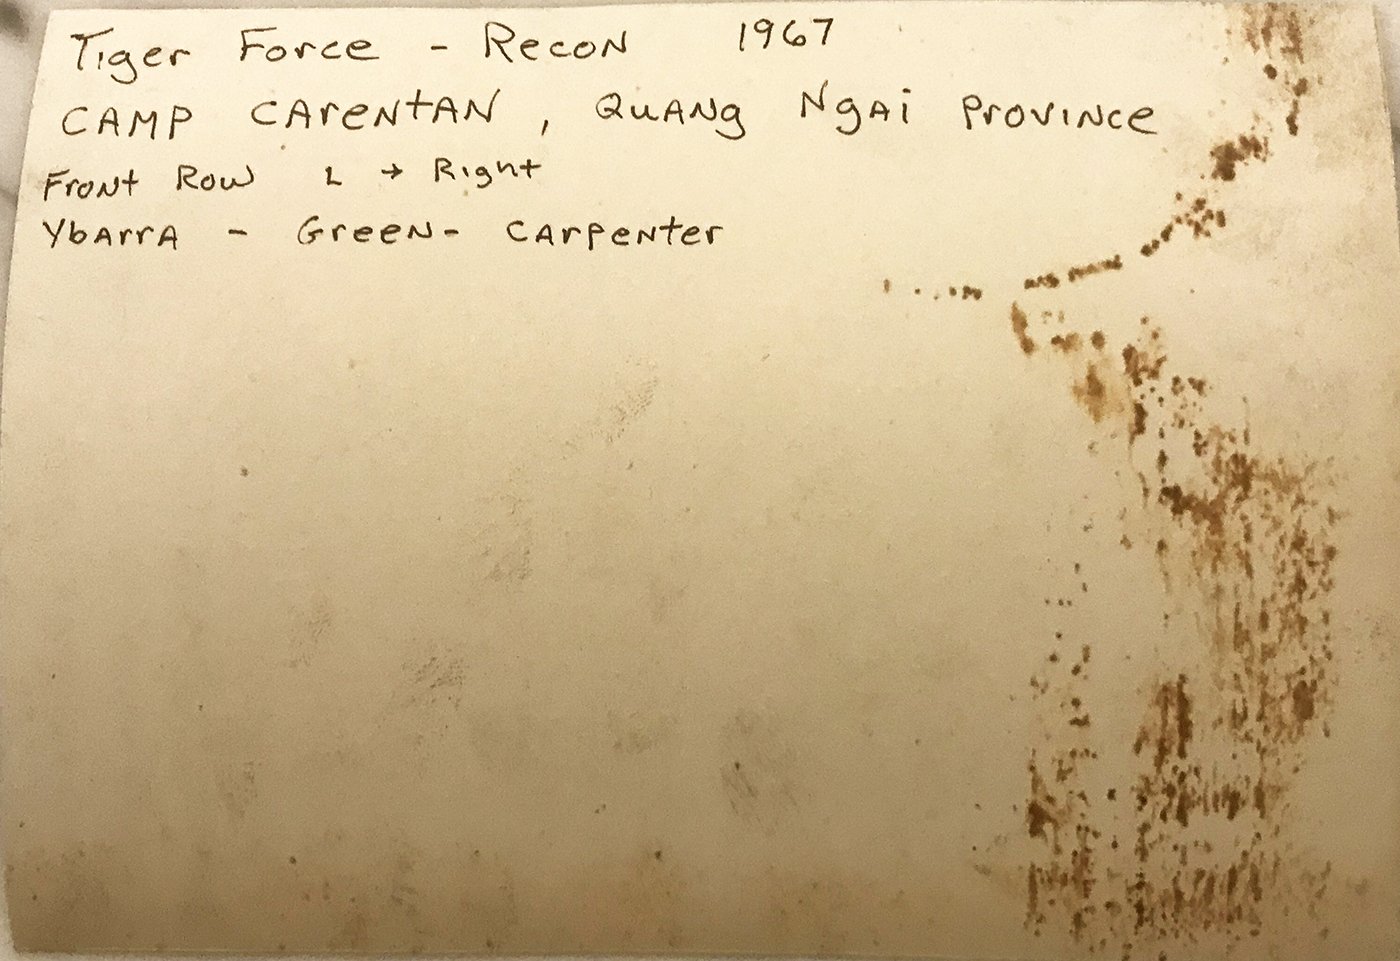 Tiger Force - Recon 1967
CAMP CArentAN, QuANg NgAi Province
Front Row L → Right
YbArrA - Green- CArpenter